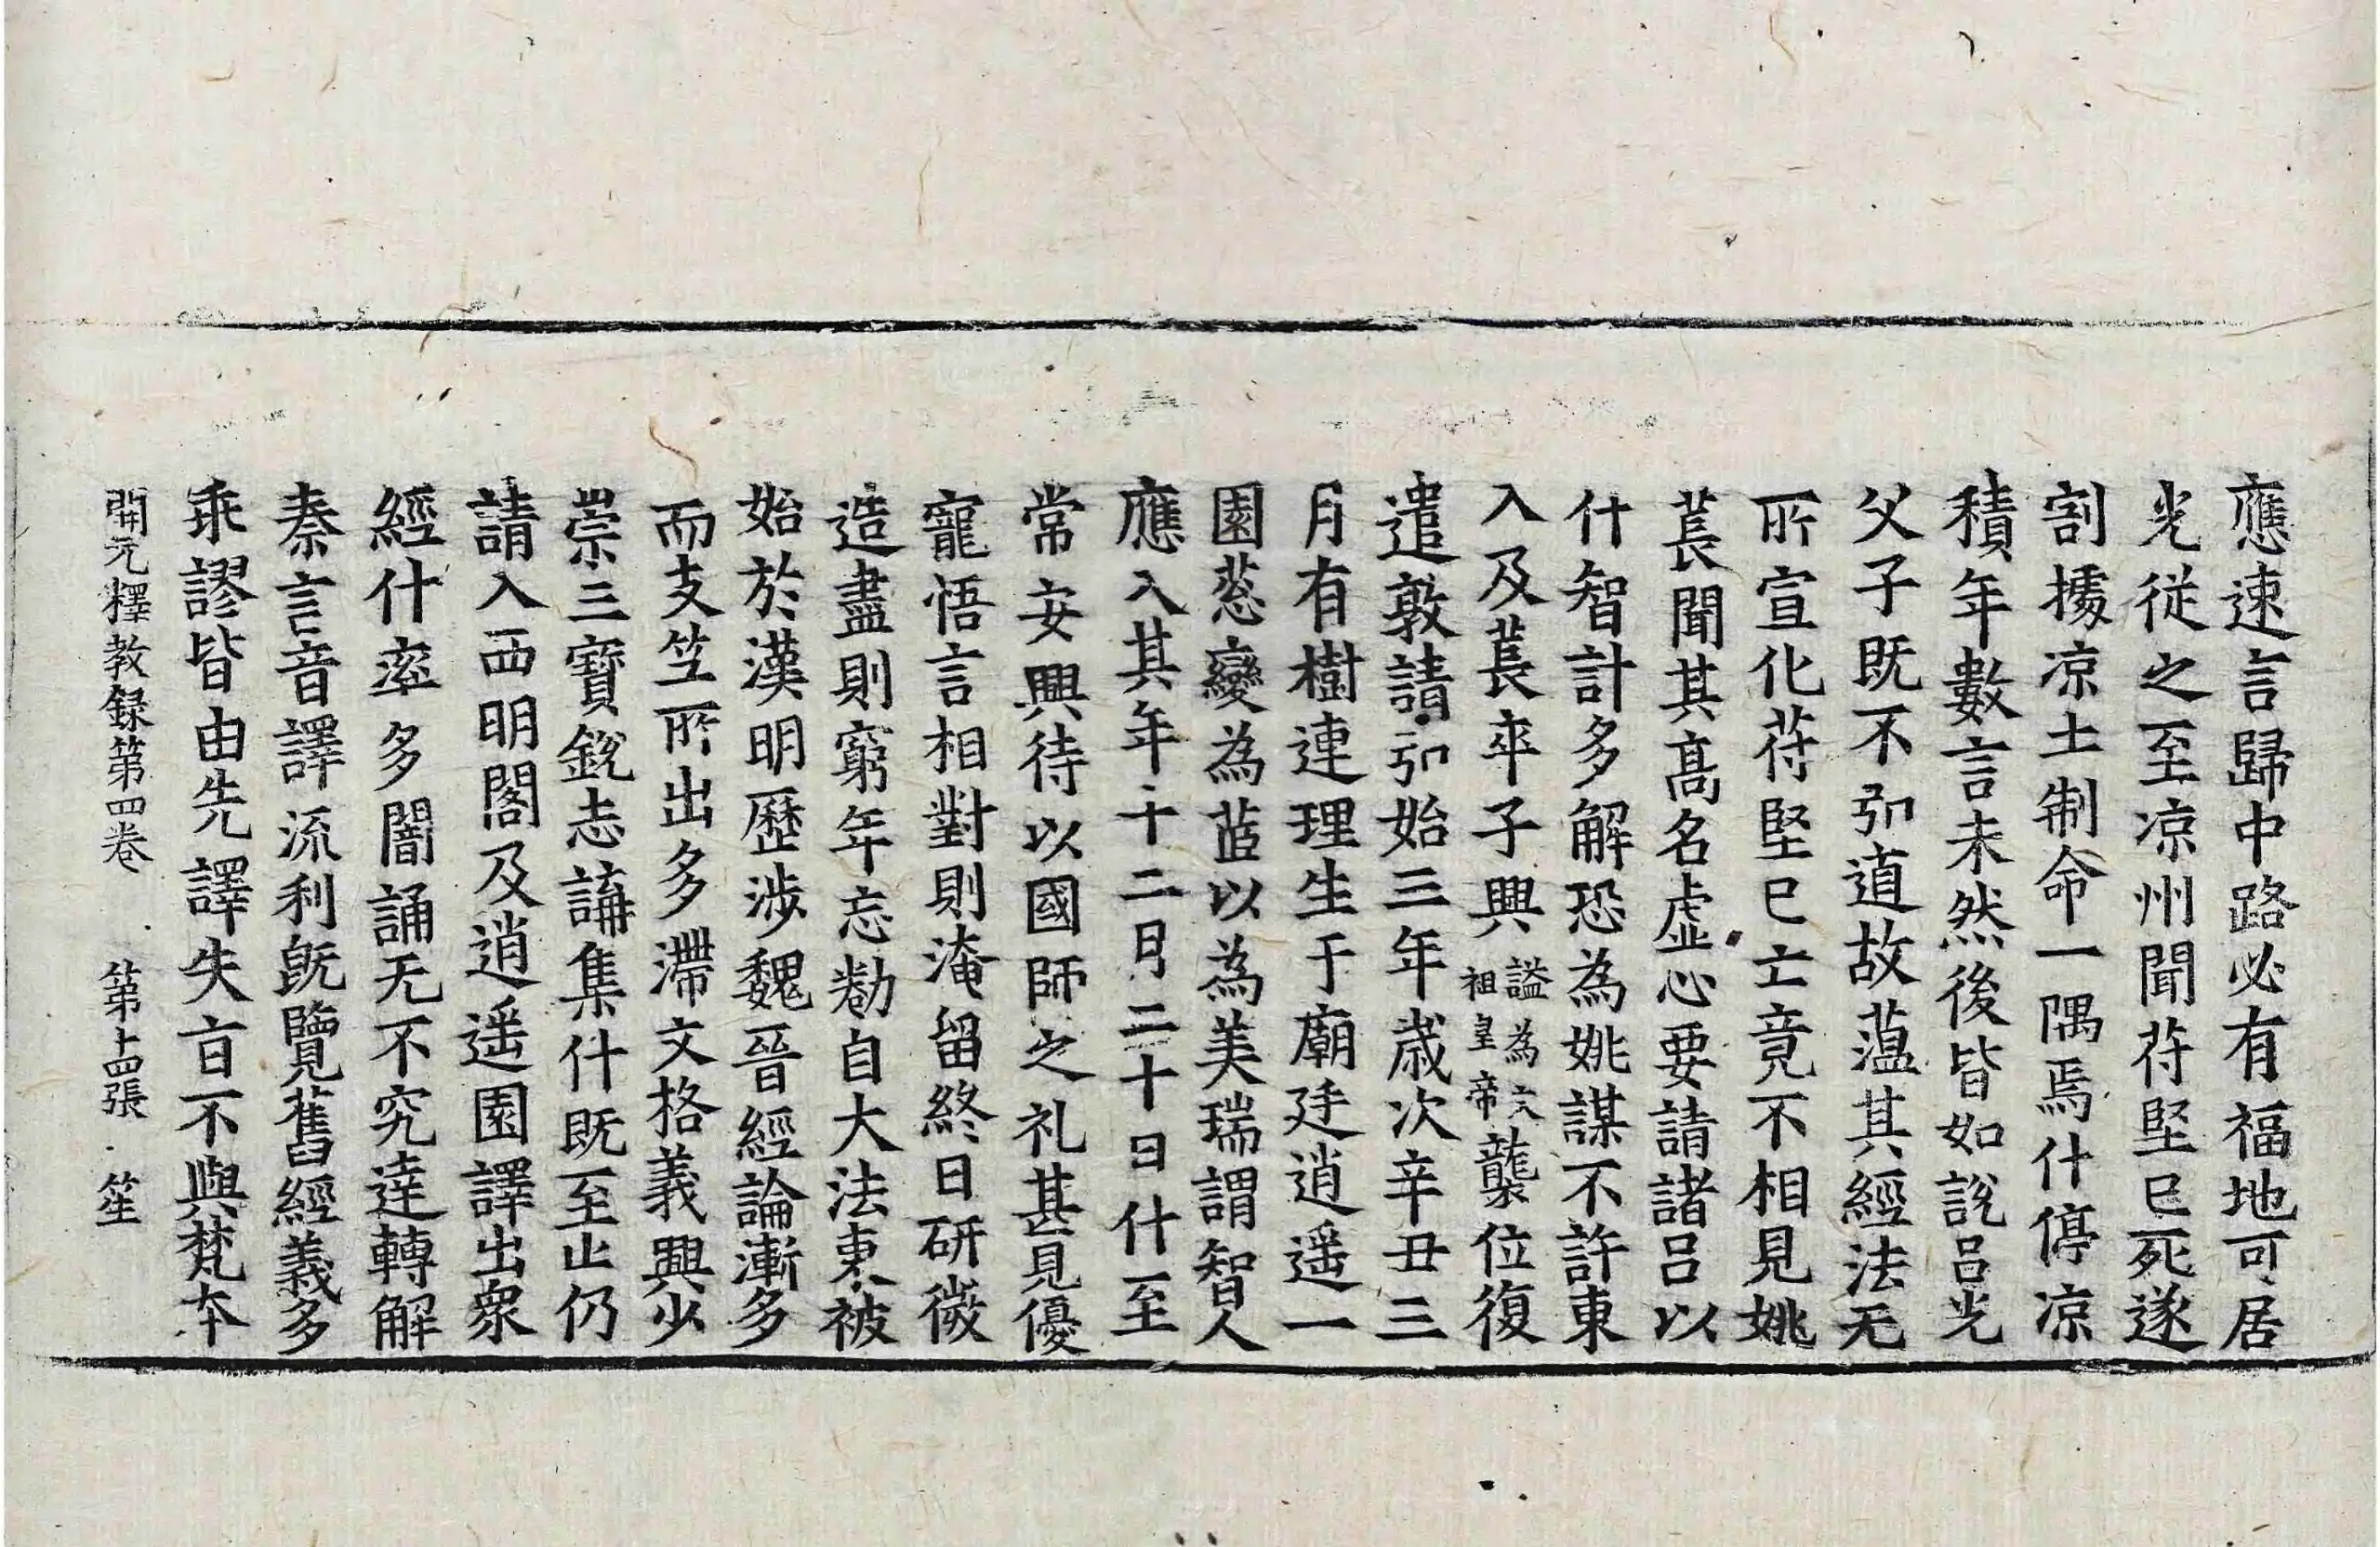 應速言歸中路必有福地可居
光從之至凉州聞苻堅已死遂
割據凉土制命一隅焉什停凉
積年數言未然後皆如説呂光
父子既不弘道故藴其經法无
所宣化苻堅已亡竟不相見姚
萇聞其髙名虛心要請諸呂以
什智計多解恐為姚謀不許東
入及萇卒子興謚為文祖皇帝襲位復
遣敦請弘始三年歲次辛丑三
月有樹連理生于廟廷逍遥一
園葱變為茝以為美瑞謂智人
應入其年十二月二十日什至
常安興待以國師之礼甚見優
寵悟言相對則淹留終日研微
造盡則窮年忘勌自大法東被
始於漢明歷涉魏晉經論漸多
而支竺所出多滯文格義興少
崇三寶鋭志講集什既至止仍
請入西明閣及逍遥園譯出衆
經什率多闇誦无不究達轉解
秦言音譯流利既覽舊經義多
乖謬皆由先譯失旨不與梵本
開元釋教録第四卷　第十四張　笙